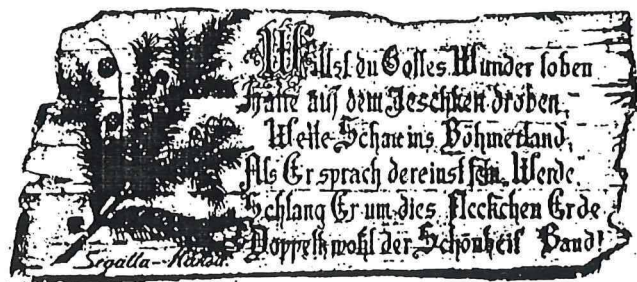 Willst du Gottes Wunder loben
Halte auf dem Jeschken droben,
Weite Schau ins Böhmerland,
Als Er sprach dereinst sein "Werde"
Schlang Er um dies Fleckchen Erde
Doppelt wohl der Schönheit Band!
Segalla-